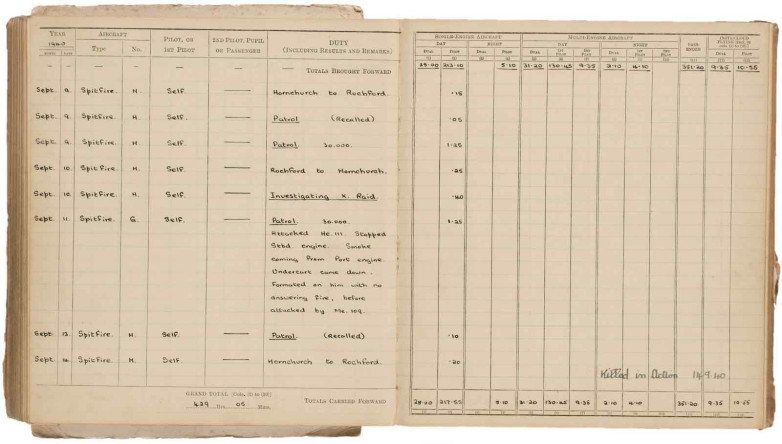 YEAR AIRCRAFT PILOT, OR 2ND PILOT, PUPIL DUTY
1940 Type No. 1ST PILOT OR PASSENGER (INCLUDING RESULTS AND REMARKS)
MONTH DATE
— — — — — — TOTALS BROUGHT FORWARD
Sept. 9. Spitfire. H. Self. — Hornchurch to Rochford.
Sept. 9. Spitfire. H. Self. — Patrol (Recalled)
Sept. 9. Spitfire. H. Self. — Patrol 30.000.
Sept. 10. Spitfire. H. Self. — Rochford to Hornchurch.
Sept. 10. Spitfire. H. Self. — Investigating X. Raid.
Sept. 11. Spitfire. G. Self. — Patrol. 30.000.
Attached He.111. Stopped
Stbd engine. Smoke
coming from Port engine.
Undercart came down.
Formated on him with no
answering fire, before
attacked by Me. 109.
Sept. 13. Spitfire. H. Self. — Patrol. (Recalled)
Sept. 14. Spitfire. H. Self. — Hornchurch to Rochford.
GRAND TOTAL [Cols. (1) to (10)]
429 Hrs. 05 Mins. TOTALS CARRIED FORWARD
SINGLE-ENGINE AIRCRAFT MULTI-ENGINE AIRCRAFT
DAY NIGHT DAY NIGHT
DUAL PILOT DUAL PILOT DUAL 1ST PILOT 2ND PILOT DUAL 1ST PILOT 2ND PILOT PASSENGER DUAL PILOT
(1) (2) (3) (4) (5) (6) (7) (8) (9) (10) (11) (12) (13)
28.00 213.10 5.10 31.20 130.45 9.35 2.10 4.10 351.20 9.35 10.55
.15
.05
1.25
.25
.40
1.25
.10
.20
Killed in Action 14.9.40
28.00 217.55 5.10 31.20 130.45 9.35 2.10 4.10 351.20 9.35 10.55
(1) (2) (3) (4) (5) (6) (7) (8) (9) (10) (11) (12) (13)